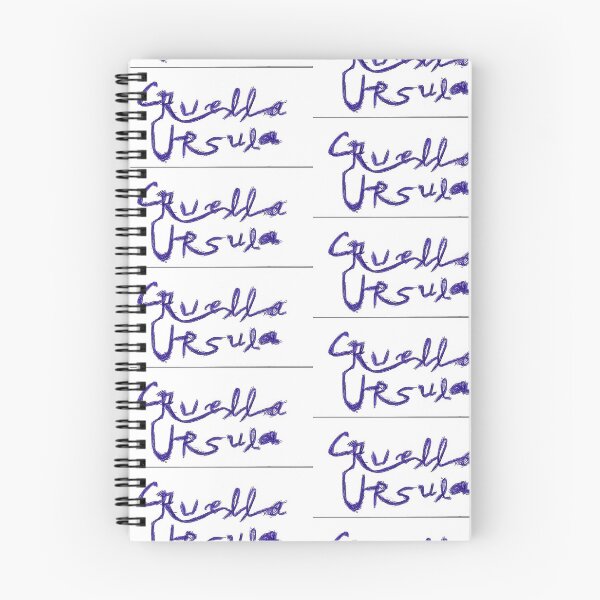 CRuella
URsula
CRuella
URsula
CRuella
URsula
CRuella
URsula
CRuella
URsula
CRuella
URsula
CRuella
URsula
CRuella
URsula
CRuella
URsula
CRuella
URsula
CRuella